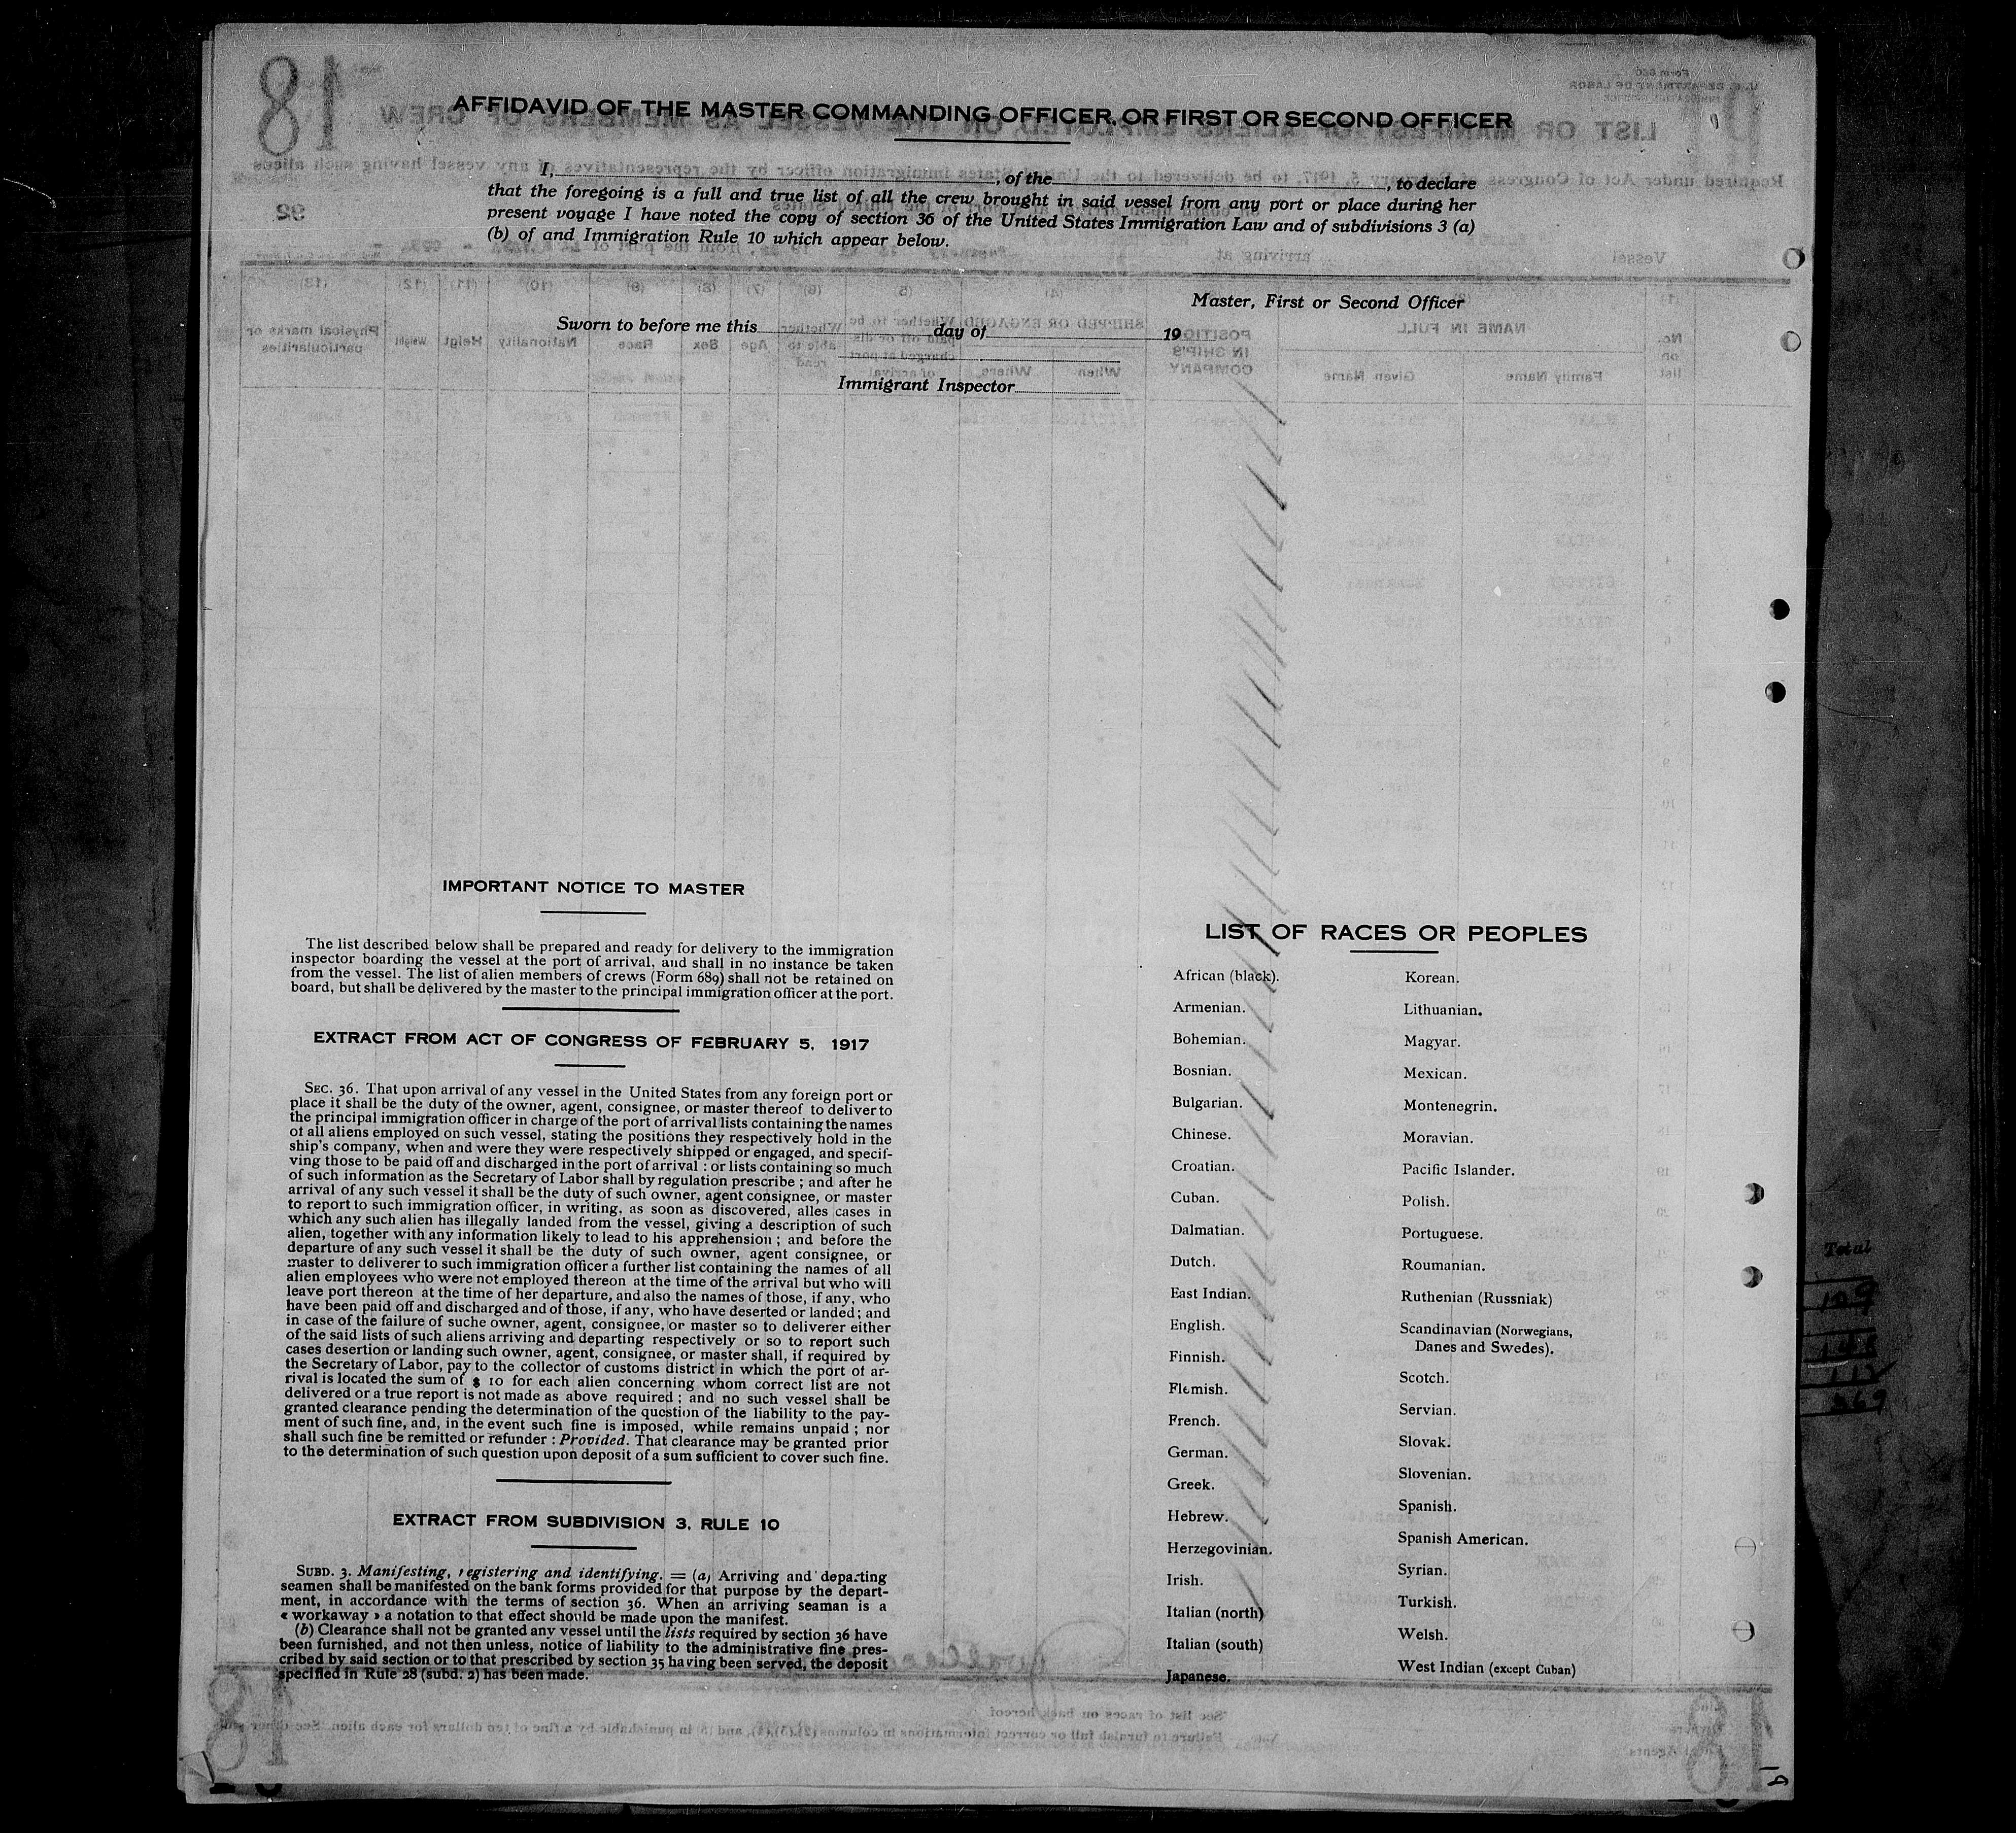 AFFIDAVID OF THE MASTER COMMANDING OFFICER. OR FIRST OR SECOND OFFICER
I, , of the , to declare
that the foregoing is a full and true list of all the crew brought in said vessel from any port or place during her
present voyage I have noted the copy of section 36 of the United States Immigration Law and of subdivisions 3 (a)
(b) of and Immigration Rule 10 which appear below.
Master, First or Second Officer
Sworn to before me this day of 19
Immigrant Inspector
IMPORTANT NOTICE TO MASTER
The list described below shall be prepared and ready for delivery to the immigration
inspector boarding the vessel at the port of arrival, and shall in no instance be taken
from the vessel. The list of alien members of crews (Form 689) shall not be retained on
board, but shall be delivered by the master to the principal immigration officer at the port.
EXTRACT FROM ACT OF CONGRESS OF FEBRUARY 5, 1917
SEC. 36. That upon arrival of any vessel in the United States from any foreign port or
place it shall be the duty of the owner, agent, consignee, or master thereof to deliver to
the principal immigration officer in charge of the port of arrival lists containing the names
ot all aliens employed on such vessel, stating the positions they respectively hold in the
ship's company, when and were they were respectively shipped or engaged, and specif-
ving those to be paid off and discharged in the port of arrival : or lists containing so much
of such information as the Secretary of Labor shall by regulation prescribe ; and after he
arrival of any such vessel it shall be the duty of such owner, agent consignee, or master
to report to such immigration officer, in writing, as soon as discovered, alles cases in
which any such alien has illegally landed from the vessel, giving a description of such
alien, together with any information likely to lead to his apprehension ; and before the
departure of any such vessel it shall be the duty of such owner, agent consignee, or
master to deliverer to such immigration officer a further list containing the names of all
alien employees who were not employed thereon at the time of the arrival but who will
leave port thereon at the time of her departure, and also the names of those, if any, who
have been paid off and discharged and of those, if any, who have deserted or landed ; and
in case of the failure of suche owner, agent, consignee, or master so to deliverer either
of the said lists of such aliens arriving and departing respectively or so to report such
cases desertion or landing such owner, agent, consignee, or master shall, if required by
the Secretary of Labor, pay to the collector of customs district in which the port ot ar-
rival is located the sum of $ 10 for each alien concerning whom correct list are not
delivered or a true report is not made as above required ; and no such vessel shall be
granted clearance pending the determination of the question of the liability to the pay-
ment of such fine, and, in the event such fine is imposed, while remains unpaid ; nor
shall such fine be remitted or refunder : Provided. That clearance may be granted prior
to the determination of such question upon deposit of a sum sufficient to cover such fine.
EXTRACT FROM SUBDIVISION 3, RULE 10
SUBD. 3. Manifesting, registering and identifying. = (a) Arriving and departing
seamen shall be manifested on the bank forms provided for that purpose by the depart-
ment, in accordance with the terms of section 36. When an arriving seaman is a
« workaway » a notation to that effect should be made upon the manifest.
(b) Clearance shall not be granted any vessel until the lists required by section 36 have
been furnished, and not then unless, notice of liability to the administrative fine pres-
cribed by said section or to that prescribed by section 35 having been served, the deposit
specified in Rule 28 (subd. 2) has been made.
LIST OF RACES OR PEOPLES
African (black).
Armenian.
Bohemian.
Bosnian.
Bulgarian.
Chinese.
Croatian.
Cuban.
Dalmatian.
Dutch.
East Indian.
English.
Finnish.
Flemish.
French.
German.
Greek.
Hebrew.
Herzegovinian.
Irish.
Italian (north)
Italian (south)
Japanese.
Korean.
Lithuanian.
Magyar.
Mexican.
Montenegrin.
Moravian.
Pacific Islander.
Polish.
Portuguese.
Roumanian.
Ruthenian (Russniak)
Scandinavian (Norwegians,
Danes and Swedes).
Scotch.
Servian.
Slovak.
Slovenian.
Spanish.
Spanish American.
Syrian.
Turkish.
Welsh.
West Indian (except Cuban)
Total
109